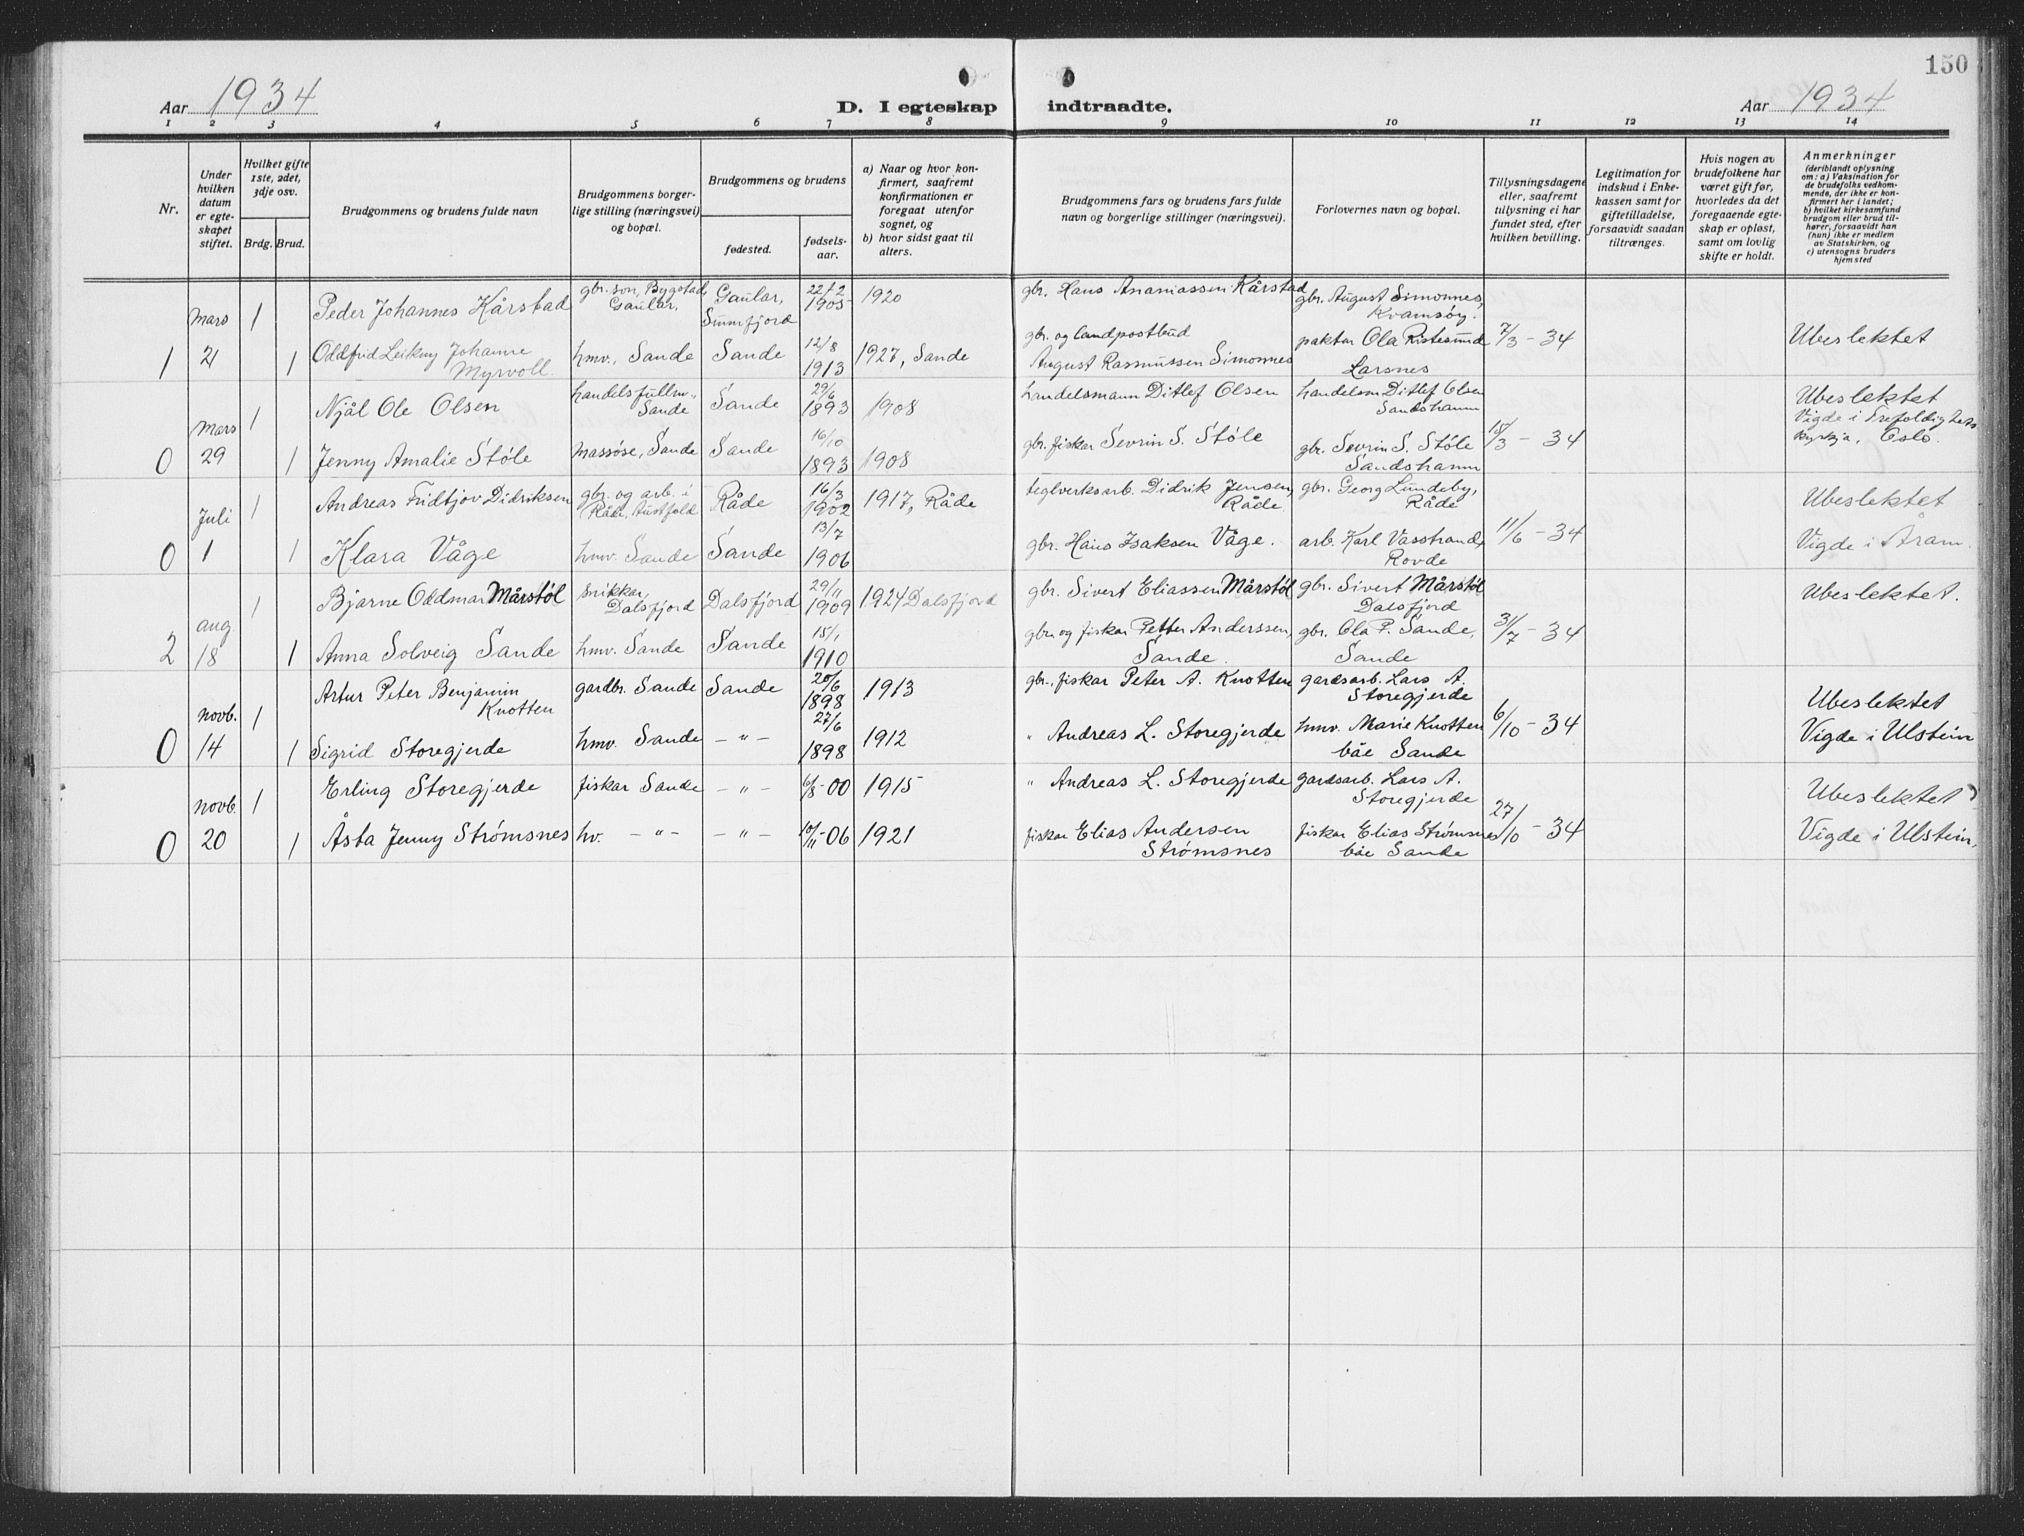 150
Aar 1934
D. I egteskap indtraadte.
Aar 1934
1 2 3 4 5 6 7 8 9 10 11 12 13 14
Nr.
Under hvilken datum er egteskapet stiftet.
Hvilket gifte 1ste, 2det, 3dje osv.
Brdg. Brud.
Brudgommens og brudens fulde navn
Brudgommens borgerlige stilling (næringsvei) og bopæl.
Brudgommens og brudens
fødested.
fødselsaar.
a) Naar og hvor konfirmert, saafremt konfirmationen er foregaat utenfor sognet, og
b) hvor sidst gaat til alters.
Brudgommens fars og brudens fars fulde navn og borgerlige stillinger (næringsvei).
Forlovernes navn og bopæl.
Tillysningsdagene eller, saafremt tillysning ei har fundet sted, efter hvilken bevilling.
Legitimation for indskud i Enkekassen samt for giftetilladelse, forsaavidt saadan tiltrænges.
Hvis nogen av brudefolkene har været gift før, hvorledes da det foregaaende egteskap er opløst, samt om lovlig skifte er holdt.
Anmerkninger (deriblandt oplysning om: a) Vaksination for de brudefolks vedkommende, der ikke er konfirmert her i landet; b) hvilket kirkesamfund brudgom eller brud tilhører, forsaavidt han (hun) ikke er medlem av Statskirken, og c) utensogns bruders hjemsted
mars 1 Peder Johannes Kårstad gbr. son, Bygstad, Gaular. Gaular, Sunnfjord 22/12 1905 1920 gbr. Hans Ananiassen Kårstad gbr. August Simonnes, Kvamsøy.
1 21 1 Oddfrid Leikny Johanne Myrvoll hmv. Sande Sande 12/8 1913 1927, Sande gbr. og landpostbud August Rasmussen Simonnes paktar Ola Ristesund Larsnes 7/3 - 34 Ubeslektet
mars 1 Njål Ole Olsen handelsfullm., Sande Sande 29/6 1893 1908 handelsmann Ditlef Olsen handelsm Ditlef Olsen Sandshamn Ubeslektet
0 29 1 Jenny Amalie Støle massøse, Sande Sande 16/10 1893 1908 gbr. fiskar Sevrin S. Støle gbr. Sevrin S. Støle Sandshamn 15/3 - 34 Vigde i Trefoldighets kyrkja, Oslo.
Juli 1 Andreas Fridtjov Didriksen gbr. og arb. i Råde, Austfold Råde 16/3 1902 1917, Råde teglverksarb. Didrik Jensen, Råde. gbr. Georg Lundeby, Råde Ubeslektet
0 1 1 Klara Våge hmv. Sande Sande 13/7 1906 gbr. Hans Isaksen Våge. arb. Karl Vasstrand, Rovde 11/6 - 34 Vigde i Åram.
aug. 1 Bjarne Oddmar Mårstøl snikkar, Dalsfjord Dalsfjord 29/11 1909 1924 Dalsfjord gbr. Sivert Eliassen Mårstøl gbr. Sivert Mårstøl Dalsfjord Ubeslektet.
2 18 1 Anna Solveig Sande hmv. Sande Sande 15/1 1910 gbr. og fiskar Petter Anderssen, Sande. gbr. Ola P. Sande, Sande 31/7 - 34
novb. 1 Artur Peter Benjamin Knotten gardbr. Sande Sande 20/6 1898 1913 gbr., fiskar Peter A. Knotten gardsarb. Lars A. Storegjerde Ubeslektet
0 14 1 Sigrid Storegjerde hmv. Sande - " - 27/6 1898 1912 " Andreas L. Storegjerde hmv. Marie Knotten båe Sande 6/10 - 34 Vigde i Ulstein
novb. 1 Erling Storegjerde fiskar Sande - " - 6/8 - 00 1915 " Andreas L. Storegjerde gardsarb. Lars A. Storegjerde Ubeslektet
0 20 1 Åsta Jenny Strømsnes hv. - " - - " - 10/11 - 06 1921 fiskar Elias Andersen Strømsnes fiskar Elias Strømsnes båe Sande 27/10 - 34 Vigde i Ulstein.